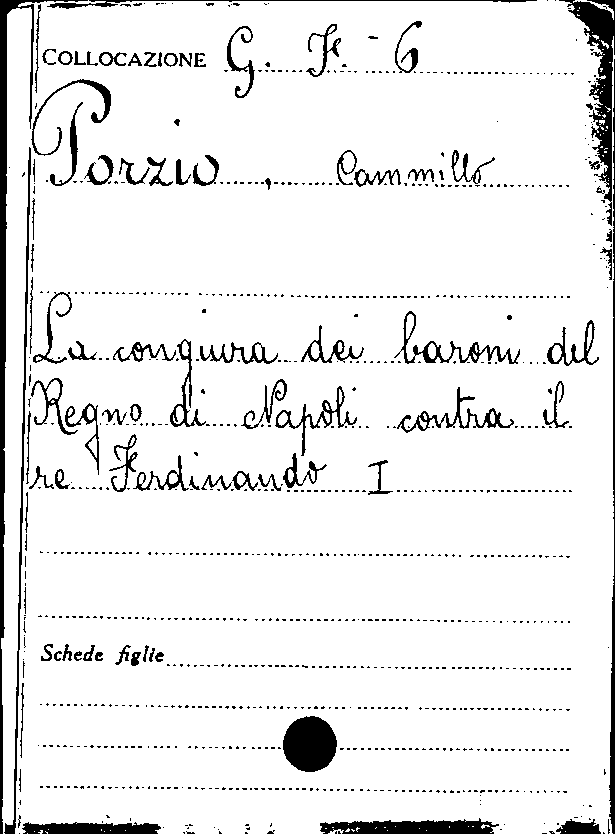 COLLOCAZIONE G. F. - 6
Porzio, Cammillo
La congiura dei baroni del
Regno di Napoli contra il
re Ferdinando I
Schede figlie